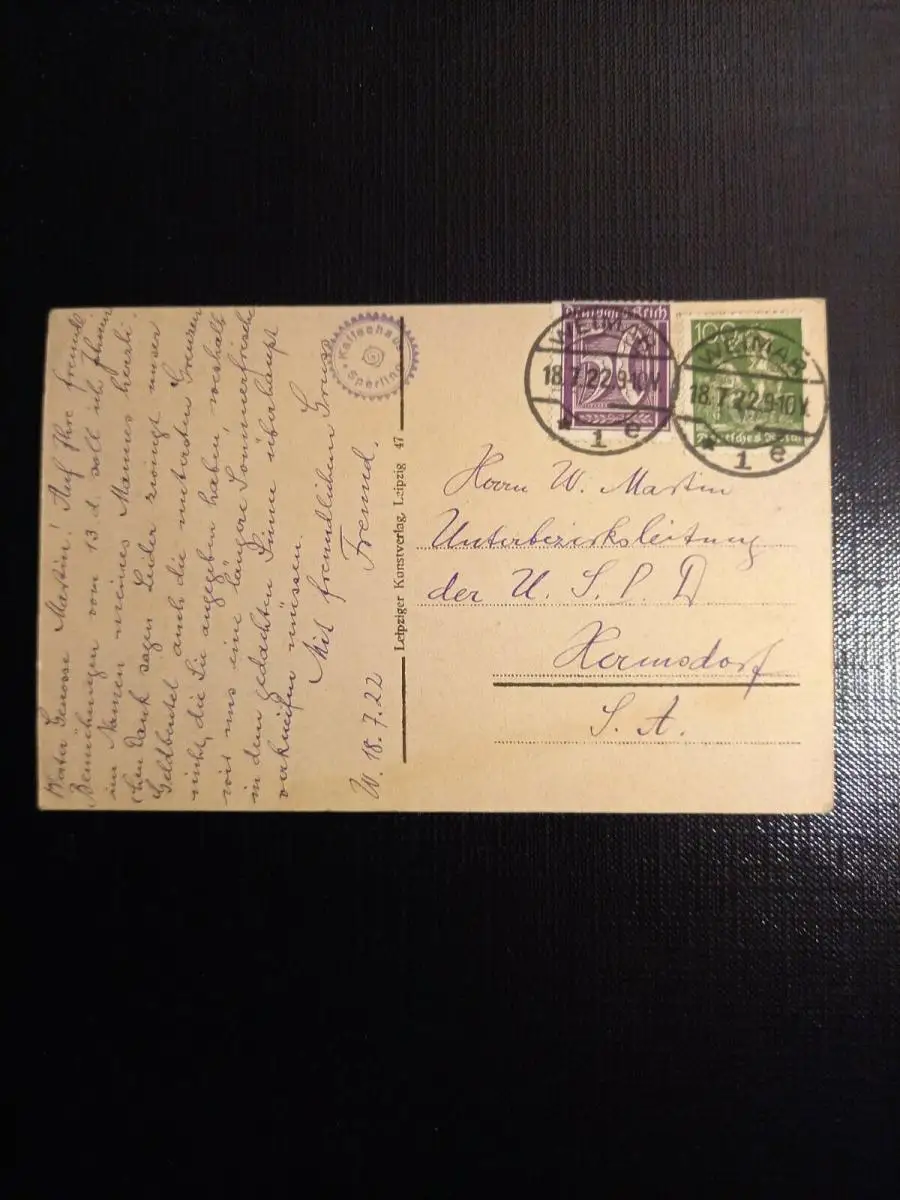 Werter Genosse Martin! Auf Ihre freundl.
Bemühungen vom 13 d. soll ich Ihnen
im Namen meines Mannes herzli-
chen Dank sagen Leider zwingt unser
Geldbeutel auch die untersten Grenzen
nicht, die Sie angegeben haben, weshalb
wir uns eine längere Sommerfrische
in dem gedachten Sinne überhaupt
verkneifen müssen.
Mit freundlichem Gruss
Freund.
W. 18.7.22
Kaltschau
Sperling
Leipziger Kunstverlag, Leipzig 47
Deutsches Reich
100
Deutsches Reich
WEIMAR
18.7.22.9-10V.
* 1 e
WEIMAR
18.7.22.9-10V.
* 1 e
Herrn W. Martin
Unterbezirksleitung
der U. S. P. D
Hermsdorf
S. A.